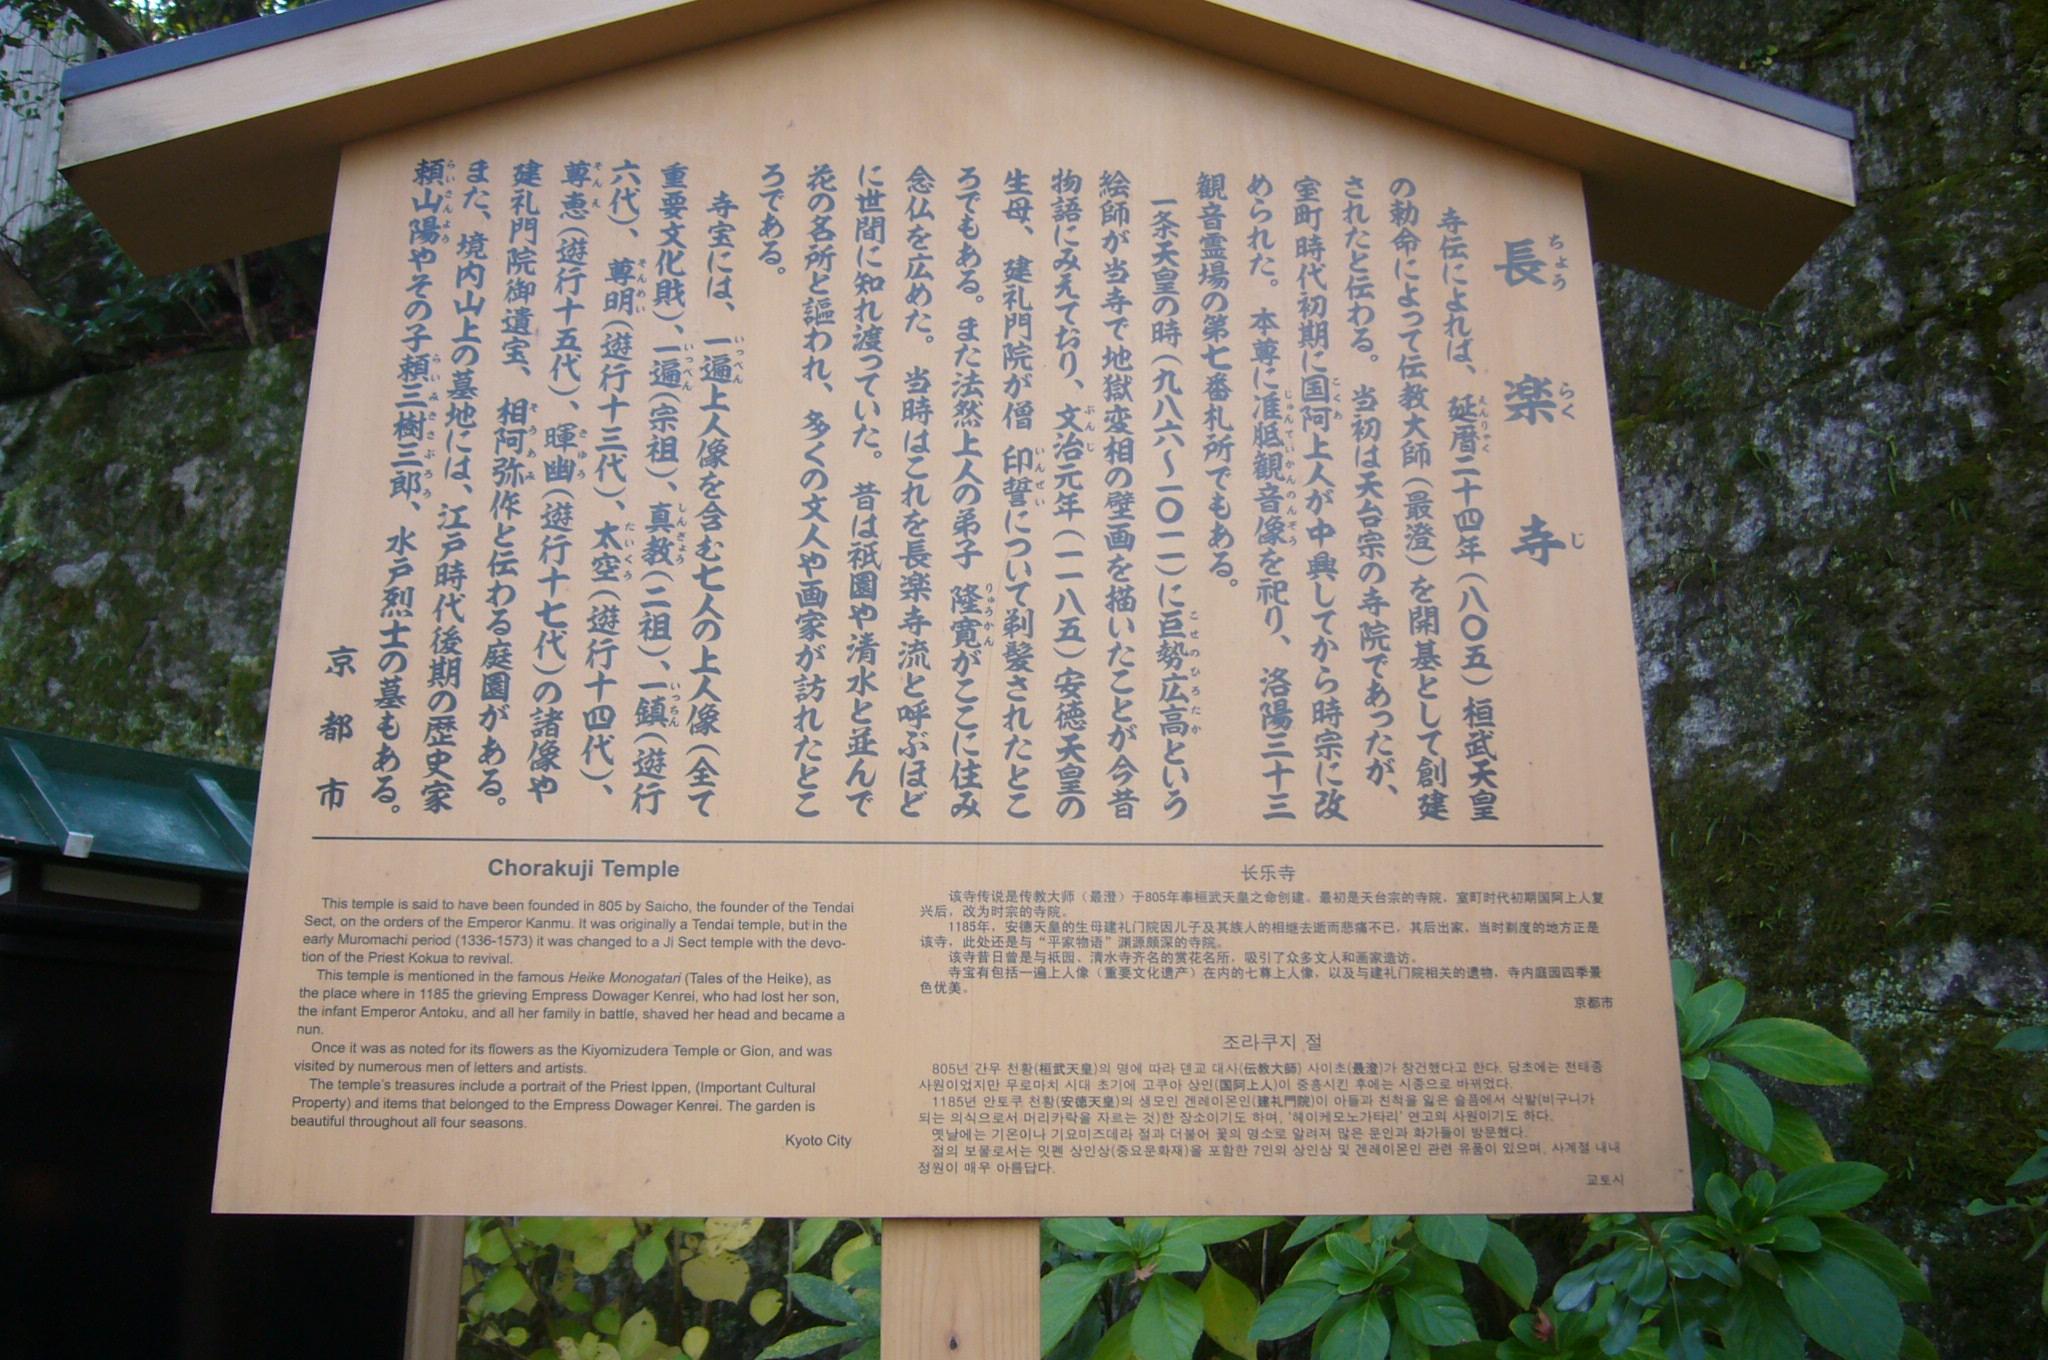 長楽寺
ちょうらくじ
寺伝によれば、延暦二十四年(八〇五)桓武天皇
えんりゃく
の勅命によって伝教大師(最澄)を開基として創建
されたと伝わる。当初は天台宗の寺院であったが、
室町時代初期に国阿上人が中興してから時宗に改
こくあ
められた。本尊に准胝観音像を祀り、洛陽三十三
じゅんていかんのんぞう
観音霊場の第七番札所でもある。
一条天皇の時(九八六〜一〇一一)に巨勢広高という
こせのひろたか
絵師が当寺で地獄変相の壁画を描いたことが今昔
物語にみえており、文治元年(一一八五)安徳天皇の
ぶんじ
生母、建礼門院が僧印誓について剃髪されたとこ
いんせい
ろでもある。また法然上人の弟子隆寛がここに住み
りゅうかん
念仏を広めた。当時はこれを長楽寺流と呼ぶほど
に世間に知れ渡っていた。昔は祇園や清水と並んで
花の名所と謳われ、多くの文人や画家が訪れたとこ
ろである。
寺宝には、一遍上人像を含む七人の上人像(全て
いっぺん
重要文化財)、一遍(宗祖)、真教(二祖)、一鎮(遊行
いっぺん しんぎょう いっちん
六代)、尊明(遊行十三代)、太空(遊行十四代)、
そんめい たいくう
尊恵(遊行十五代)、暉幽(遊行十七代)の諸像や
そんえ きゆう
建礼門院御遺宝、相阿弥作と伝わる庭園がある。
そうあみ
また、境内山上の墓地には、江戸時代後期の歴史家
頼山陽やその子頼三樹三郎、水戸烈士の墓もある。
らいさんよう らいみきさぶろう
京都市
Chorakuji Temple
This temple is said to have been founded in 805 by Saicho, the founder of the Tendai
Sect, on the orders of the Emperor Kanmu. It was originally a Tendai temple, but in the
early Muromachi period (1336-1573) it was changed to a Ji Sect temple with the devo-
tion of the Priest Kokua to revival.
This temple is mentioned in the famous Heike Monogatari (Tales of the Heike), as
the place where in 1185 the grieving Empress Dowager Kenrei, who had lost her son,
the infant Emperor Antoku, and all her family in battle, shaved her head and became a
nun.
Once it was as noted for its flowers as the Kiyomizudera Temple or Gion, and was
visited by numerous men of letters and artists.
The temple's treasures include a portrait of the Priest Ippen, (Important Cultural
Property) and items that belonged to the Empress Dowager Kenrei. The garden is
beautiful throughout all four seasons.
Kyoto City
长乐寺
该寺传说是传教大师(最澄)于805年奉桓武天皇之命创建。最初是天台宗的寺院,室町时代初期国阿上人复
兴后,改为时宗的寺院。
1185年,安德天皇的生母建礼门院因儿子及其族人的相继去逝而悲痛不已,其后出家,当时剃度的地方正是
该寺,此处还是与“平家物语”渊源颇深的寺院。
该寺昔日曾是与祇园、清水寺齐名的赏花名所,吸引了众多文人和画家造访。
寺宝有包括一遍上人像(重要文化遗产)在内的七尊上人像,以及与建礼门院相关的遗物,寺内庭园四季景
色优美。
京都市
조라쿠지 절
805년 간무 천황(桓武天皇)의 명에 따라 덴교 대사(伝教大師) 사이초(最澄)가 창건했다고 한다. 당초에는 천태종
사원이었지만 무로마치 시대 초기에 고쿠아 상인(国阿上人)이 중흥시킨 후에는 시종으로 바뀌었다.
1185년 안토쿠 천황(安徳天皇)의 생모인 겐레이몬인(建礼門院)이 아들과 친척을 잃은 슬픔에서 삭발(비구니가
되는 의식으로서 머리카락을 자르는 것)한 장소이기도 하며, '헤이케모노가타리' 연고의 사원이기도 하다.
옛날에는 기온이나 기요미즈데라 절과 더불어 꽃의 명소로 알려져 많은 문인과 화가들이 방문했다.
절의 보물로서는 잇펜 상인상(중요문화재)을 포함한 7인의 상인상 및 겐레이몬인 관련 유품이 있으며, 사계절 내내
정원이 매우 아름답다.
교토시